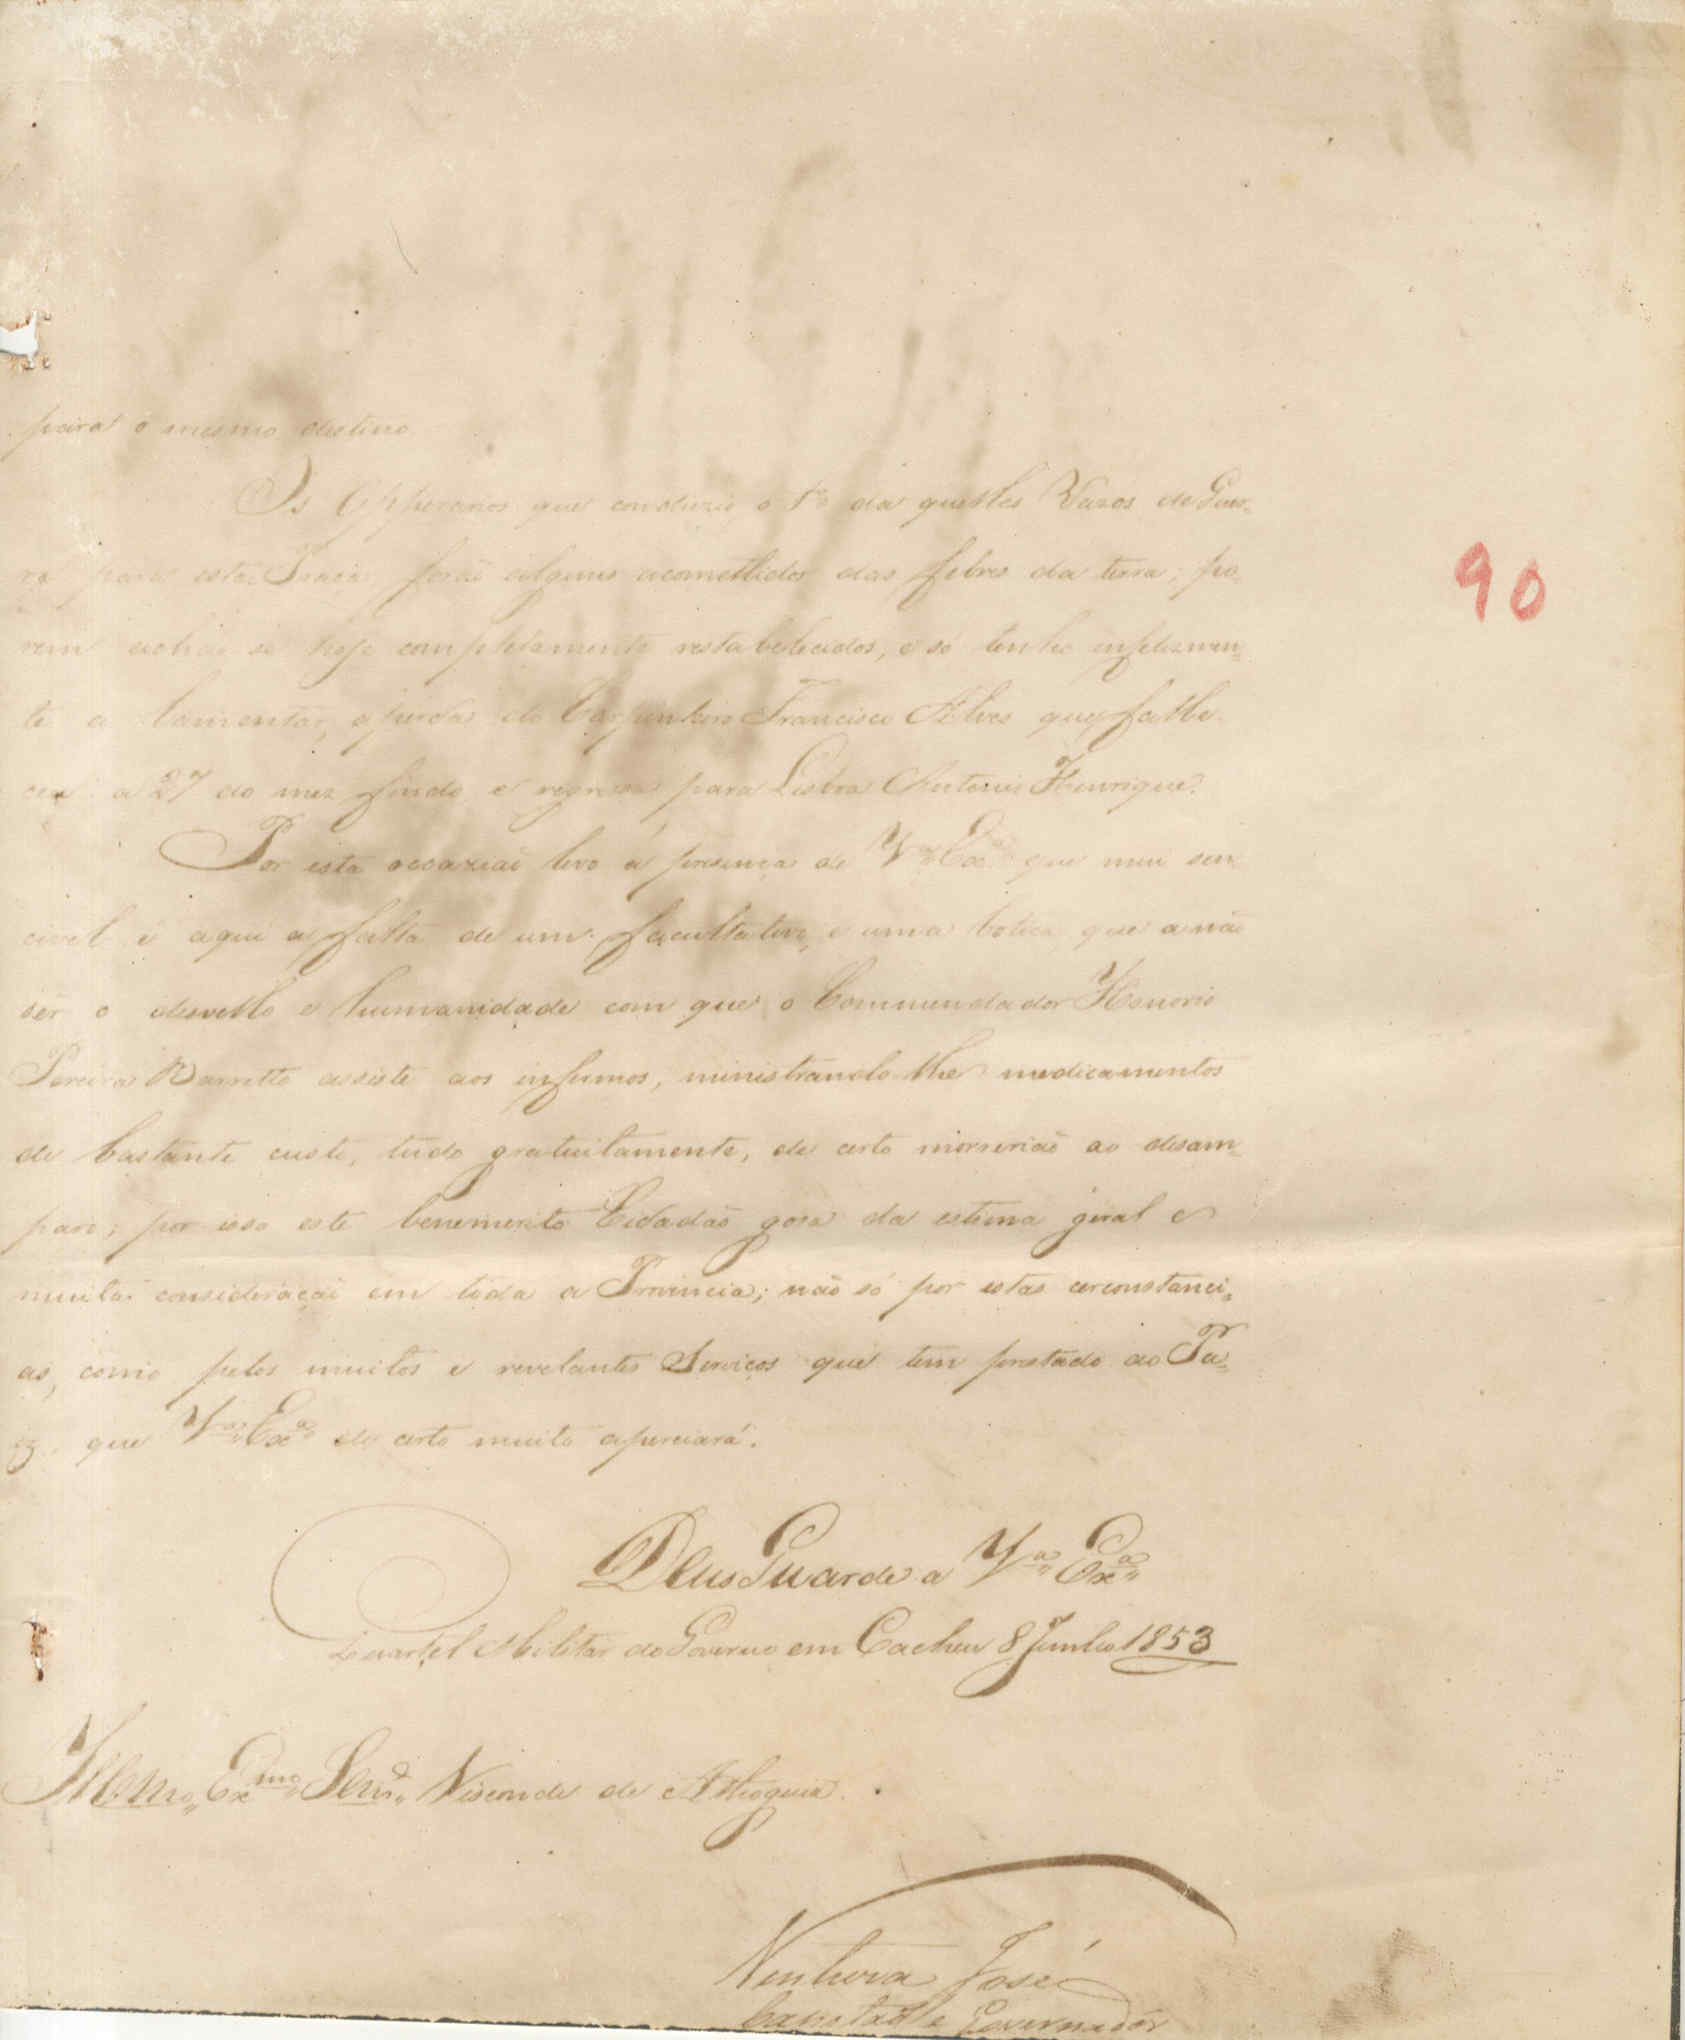 para o mesmo destino.
Os Opperarios que conduzio o 1º da quelles Vazos de Guer-
ra para esta Praça forão alguns acomettidos das febres da terra; po-
rem achão se hoje completamente restabellecidos, e só tenho infelizmen-
te a lamentar, a perda do Carpinteiro Francisco Alves que falle-
ceu a 27 do mez findo e regressa para Lisboa Antonio Henrique.
90
Por esta occazião levo á presença de Vª Exª que mui sen-
civel é aqui a falta de um facultativo, e uma botica, que a não
ser o desvello e humanidade com que o Commendador Honorio
Pereira Barretto assiste aos infermos, ministrando lhe medicamentos
de bastante custo, tudo gratuitamente, de certo morrerião ao desam-
paro; por isso este benemerito Cidadão gosa da estima geral e
muita consideração em toda a Provincia; não só por estas circonstanci-
as, como pelos muitos e revelantes Serviços que tem prestado ao Pa-
iz que Vª Exª de certo muito apreciará.
Deus Guarde a Vª Exª
Quartel Militar do Governo em Cacheu 8 Junho 1853
Illmo Exmo Senr Visconde de Athoguia.
Ventura José
Capitão e Governador